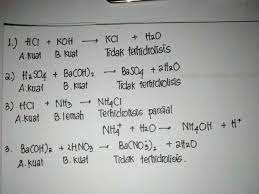 1.) HCl + KOH → KCl + H₂O
A.kuat B.kuat Tidak terhidrolisis
2) H₂SO₄ + Ba(OH)₂ → BaSO₄ + 2H₂O
A.kuat B.kuat Tidak terhidrolisis
3) HCl + NH₃ → NH₄Cl
A.kuat B.lemah Terhidrolisis parsial
NH₄⁺ + H₂O → NH₄OH + H⁺
3. Ba(OH)₂ + 2HNO₃ → Ba(NO₃)₂ + 2H₂O
A.kuat B.kuat Tidak terhidrolisis.